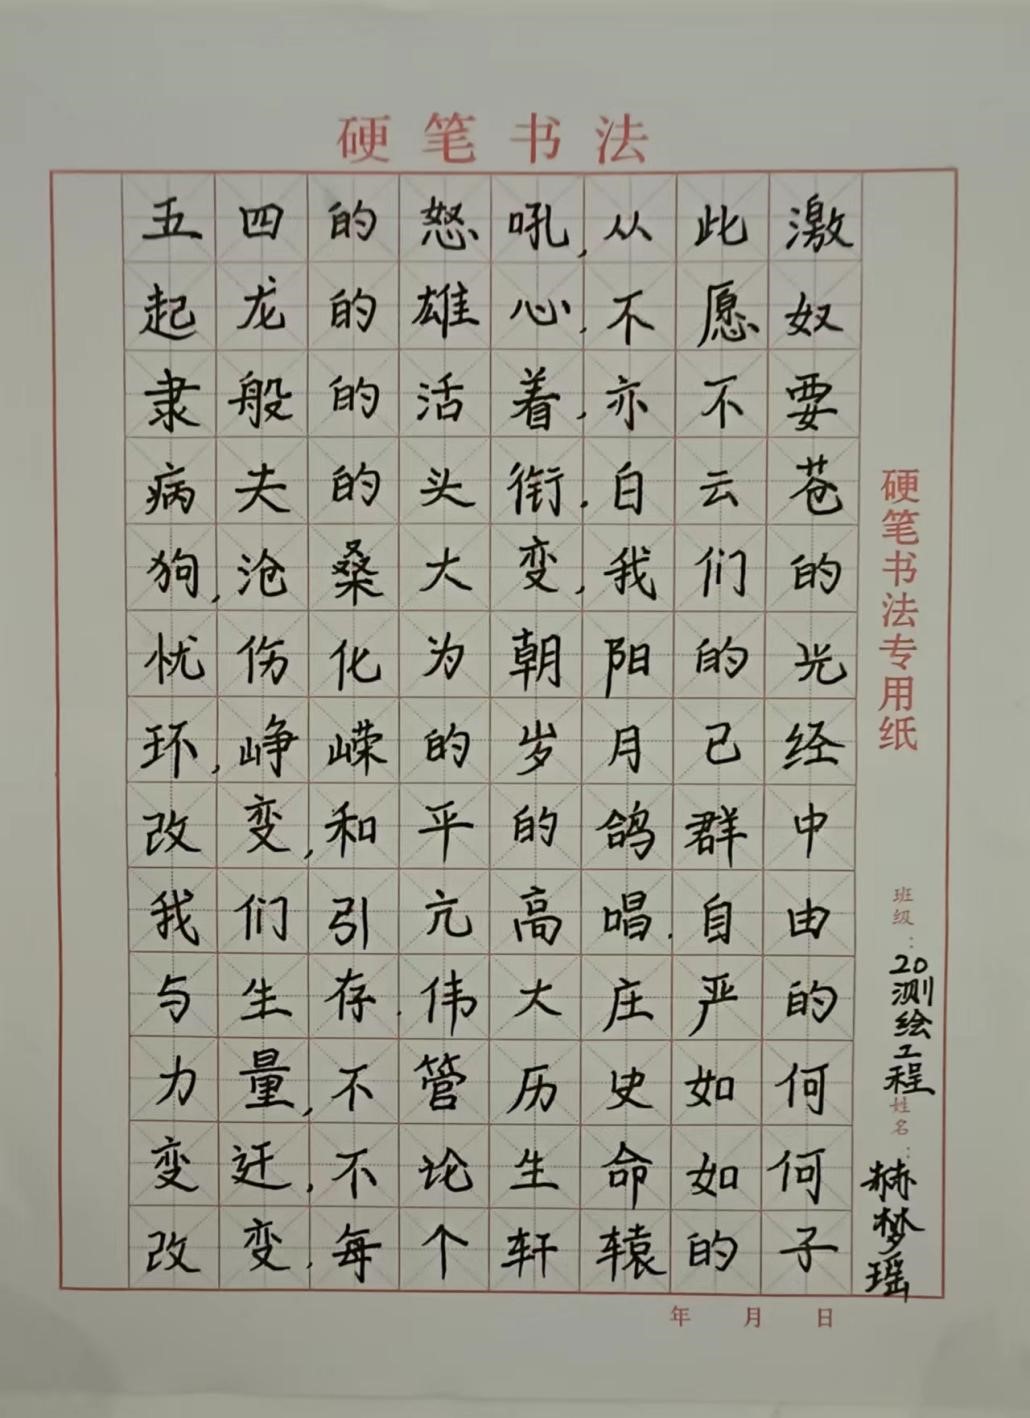 硬笔书法
五四的怒吼,从此激
起龙的雄心,不愿奴
隶般的活着,亦不要
病夫的头衔,白云苍
狗,沧桑大变,我们的
忧伤化为朝阳的光
环,峥嵘的岁月已经
改变,和平的鸽群中
我们引亢高唱.自由
与生存.伟大庄严的
力量,不管历史如何
变迁,不论生命如何
改变,每个轩辕的子
硬笔书法专用纸
班级:20测绘工程
姓名:赫梦瑶
年 月 日